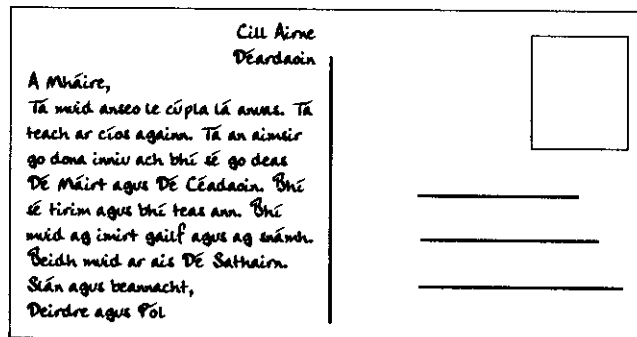 Cill Airne
Déardaoin
A Mháire,
Tá muid anseo le cúpla lá anuas. Tá
teach ar cíos againn. Tá an aimsir
go dona inniu ach bhí sé go deas
Dé Máirt agus Dé Céadaoin. Bhí
sé tirim agus bhí teas ann. Bhí
muid ag imirt gailf agus ag snámh.
Beidh muid ar ais Dé Sathairn.
Slán agus beannacht,
Deirdre agus Pól